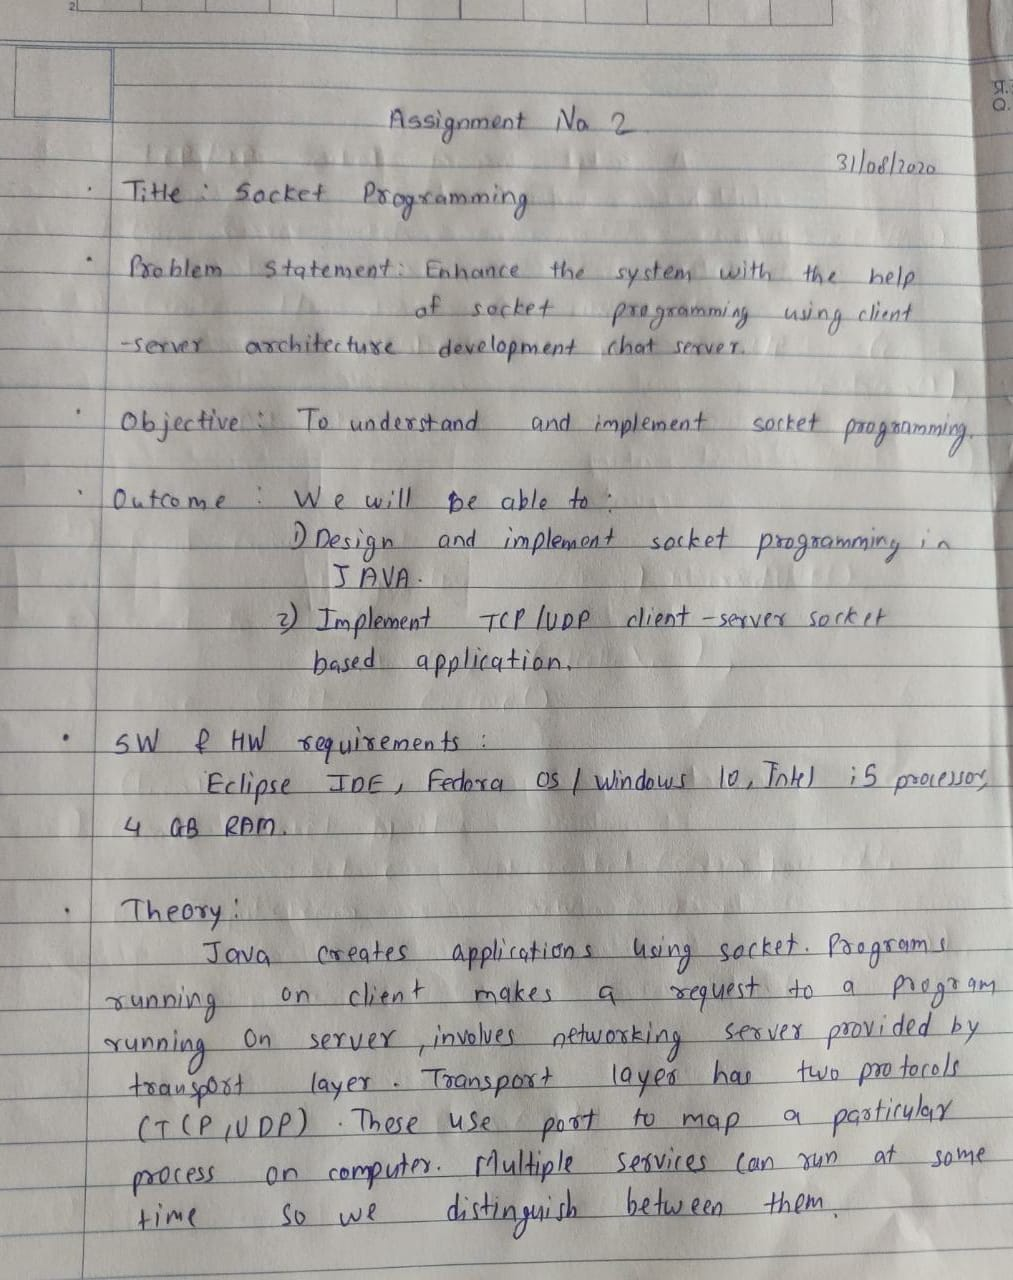 2
प्र.
Q.
Assignment No 2
31/08/2020
Title : Socket Programming
Problem Statement: Enhance the system with the help
of socket programming using client
-server architecture development chat server.
Objective : To understand and implement socket programming.
Outcome : We will be able to :
1) Design and implement socket programming in
JAVA.
2) Implement TCP/UDP client-server socket
based application.
SW & HW requirements :
Eclipse IDE, Fedora OS / Windows 10, Intel i5 processor,
4 GB RAM.
Theory :
Java creates applications using socket. Programs
running on client makes a request to a program
running on server, involves networking server provided by
transport layer. Transport layer has two protocols
(TCP, UDP). These use port to map a particular
process on computer. Multiple services can run at some
time so we distinguish between them.